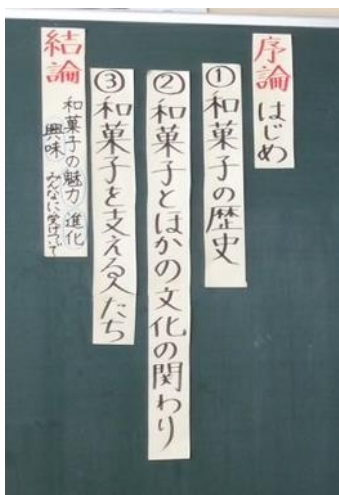 序論 はじめ
①和菓子の歴史
②和菓子とほかの文化の関わり
③和菓子を支える人たち
結論
和菓子の魅力 進化
興味 みんなに受けついで